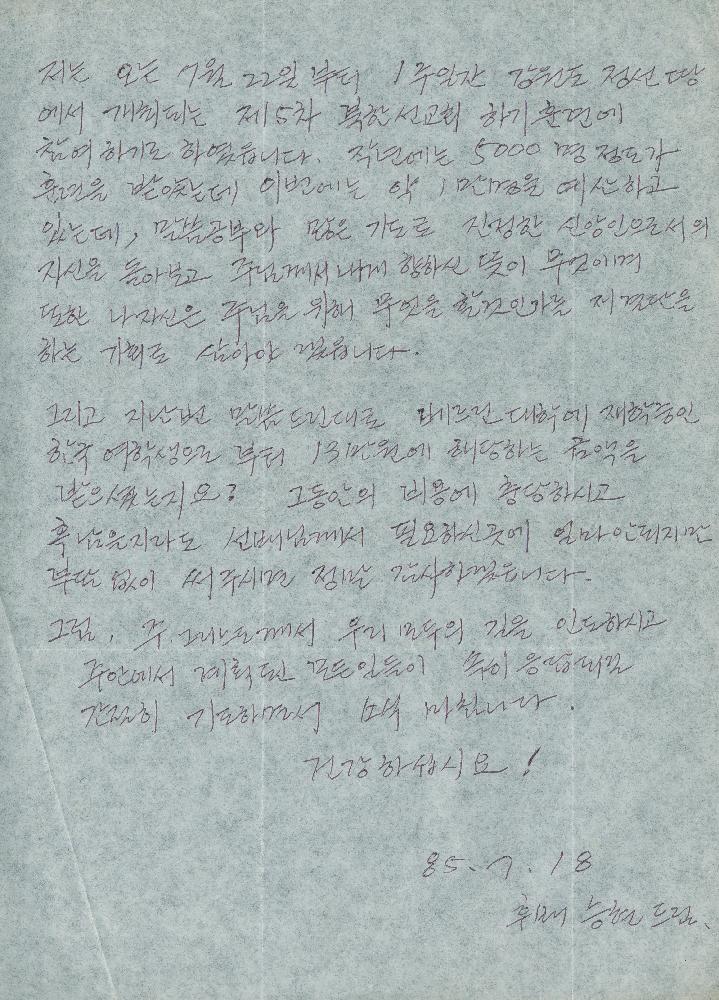 저는 오는 7월 22일 부터 1주일간 강원도 정선 땅
에서 개최되는 제5차 북한선교회 하기훈련에
참여하기로 하였읍니다. 작년에는 5000명 정도가
훈련을 받았는데 이번에는 약 1만명을 예산하고
있는데, 말씀공부와 많은 기도로 진정한 신앙인으로서의
자신을 돌아보고 주님께서 나에게 향하신 뜻이 무엇이며
또한 나 자신은 주님을 위해 무엇을 할것인가를 재결단을
하는 기회로 삼아야 겠읍니다.
그리고 지난번 말씀드린대로 대학에 재학중인
한국 여학생으로 부터 13만원에 해당하는 금액을
받으셨는지요? 그동안의 비용에 충당하시고
혹 남을지라도 선배님께서 필요하신곳에 얼마 안되지만
부담 없이 써주시면 정말 감사하겠읍니다.
그럼, 주 께서 우리 모두의 길을 인도하시고
주안에서 계획된 모든일들이 속히 응답되길
간절히 기도하면서 마칩니다.
건강하십시요!
85. 7. 18
후배 승현 드림.